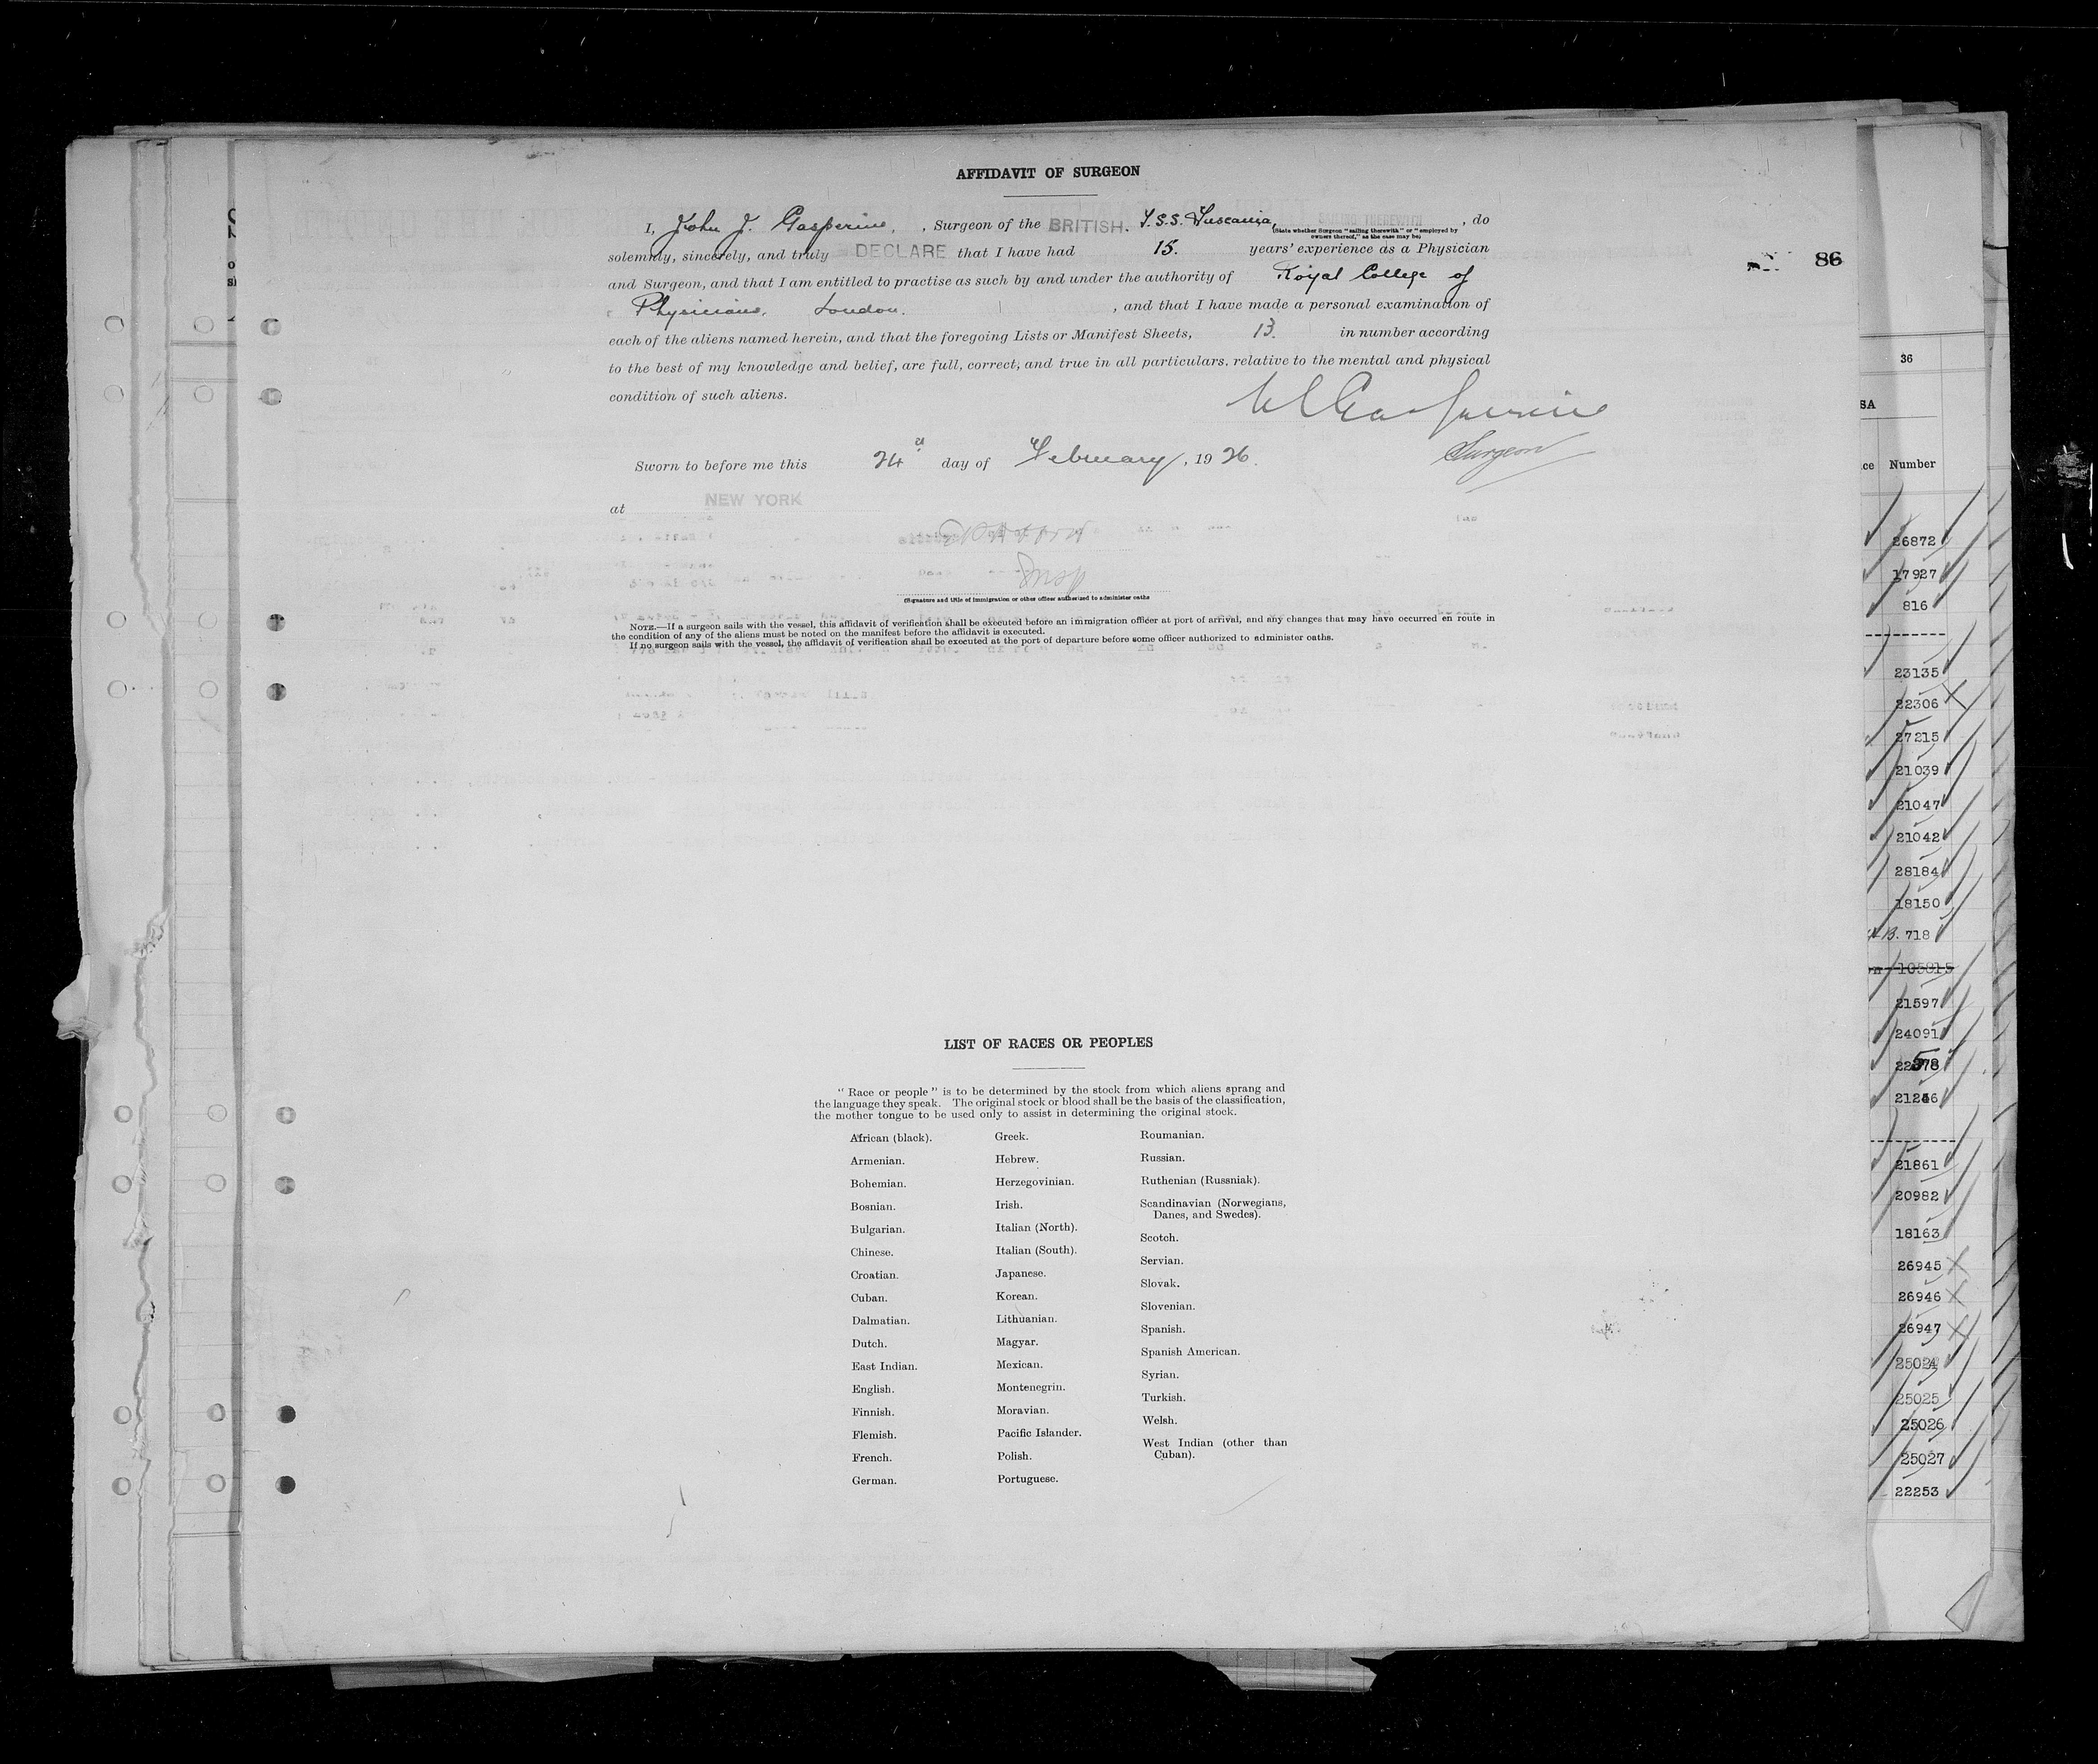 AFFIDAVIT OF SURGEON
I, John J. Gasperine, , Surgeon of the BRITISH. T.S.S. Tuscania, SAILING THEREWITH , do
(State whether Surgeon "sailing therewith" or "employed by
owners thereof," as the case may be)
solemnly, sincerely, and truly DECLARE that I have had 15. years' experience as a Physician
and Surgeon, and that I am entitled to practise as such by and under the authority of Royal College of
Physicians, London. , and that I have made a personal examination of
each of the aliens named herein, and that the foregoing Lists or Manifest Sheets, 13. in number according
to the best of my knowledge and belief, are full, correct, and true in all particulars, relative to the mental and physical
condition of such aliens.
Surgeon
Sworn to before me this 24 day of February, 1926.
at NEW YORK
Insp
(Signature and title of immigration or other officer authorized to administer oaths
NOTE.—If a surgeon sails with the vessel, this affidavit of verification shall be executed before an immigration officer at port of arrival, and any changes that may have occurred en route in
the condition of any of the aliens must be noted on the manifest before the affidavit is executed.
If no surgeon sails with the vessel, the affidavit of verification shall be executed at the port of departure before some officer authorized to administer oaths.
LIST OF RACES OR PEOPLES
"Race or people" is to be determined by the stock from which aliens sprang and
the language they speak. The original stock or blood shall be the basis of the classification,
the mother tongue to be used only to assist in determining the original stock.
African (black).
Armenian.
Bohemian.
Bosnian.
Bulgarian.
Chinese.
Croatian.
Cuban.
Dalmatian.
Dutch.
East Indian.
English.
Finnish.
Flemish.
French.
German.
Greek.
Hebrew.
Herzegovinian.
Irish.
Italian (North).
Italian (South).
Japanese.
Korean.
Lithuanian.
Magyar.
Mexican.
Montenegrin.
Moravian.
Pacific Islander.
Polish.
Portuguese.
Roumanian.
Russian.
Ruthenian (Russniak).
Scandinavian (Norwegians,
Danes, and Swedes).
Scotch.
Servian.
Slovak.
Slovenian.
Spanish.
Spanish American.
Syrian.
Turkish.
Welsh.
West Indian (other than
Cuban).
86
36
SA
ce Number
26872
17927
816
23135
22306
27215
21039
21047
21042
28184
18150
718
105815
21597
24091
21861
20982
18163
26945
26946
26947
25024
25025
25026
25027
22253